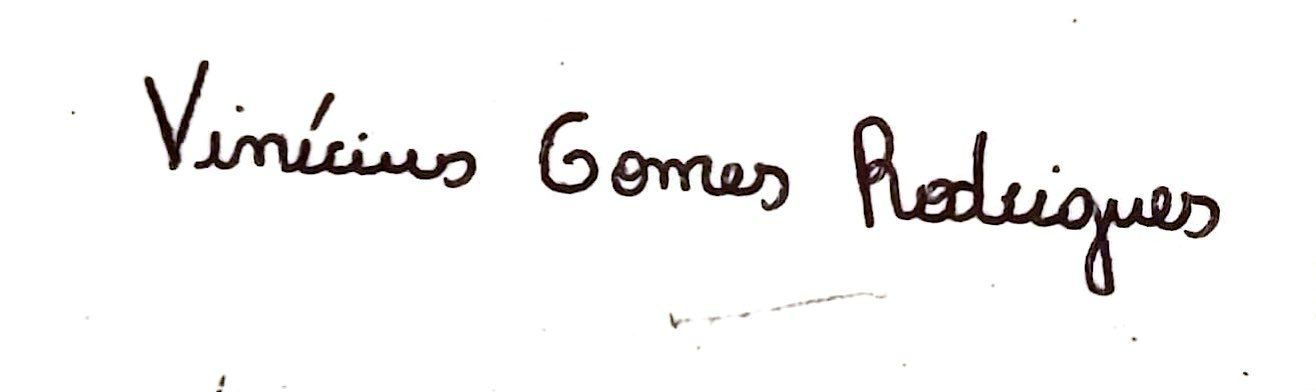 Vinícius Gomes Rodrigues